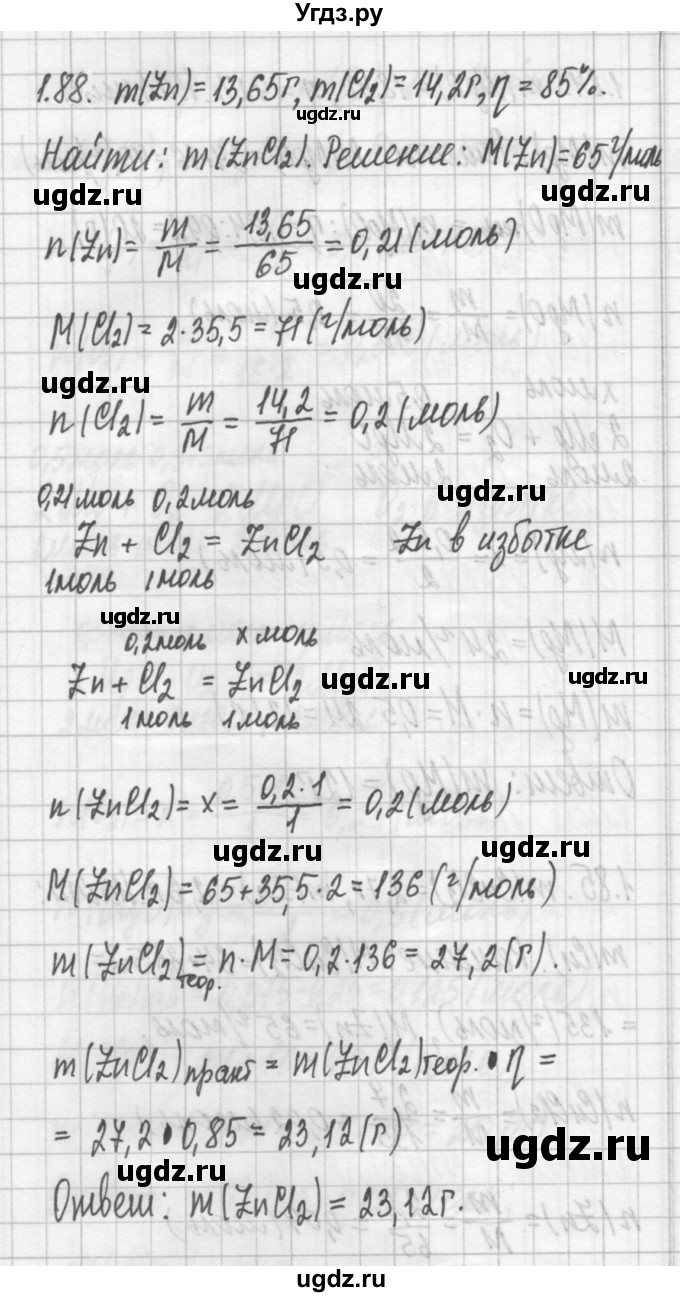 Угдз.ру
1.88. m(Zn)=13,65г, m(Cl₂)=14,2г, η=85%.
ugdz.ru
Найти: m(ZnCl₂). Решение: M(Zn)=65 г/моль
ugdz.ru ugdz.ru
n(Zn)= m/M = 13,65/65 = 0,21(моль)
ugdz.ru
M(Cl₂)=2·35,5=71(г/моль)
ugdz.ru
n(Cl₂)= m/M = 14,2/71 = 0,2(моль)
0,21моль 0,2моль ugdz.ru
Zn + Cl₂ = ZnCl₂ Zn в избытке
1моль 1моль
ugdz.ru
0,2моль x моль
Zn + Cl₂ = ZnCl₂ ugdz.ru ugdz.ru
1моль 1моль
n(ZnCl₂)=x= 0,2·1/1 = 0,2(моль)
ugdz.ru ugdz.ru
M(ZnCl₂)=65+35,5·2=136(г/моль)
m(ZnCl₂)теор.=n·M=0,2·136=27,2(г).
m(ZnCl₂)практ=m(ZnCl₂)теор.·η=
=27,2·0,85=23,12(г)
ugdz.ru ugdz.ru
Ответ: m(ZnCl₂)=23,12г.
ugdz.ru